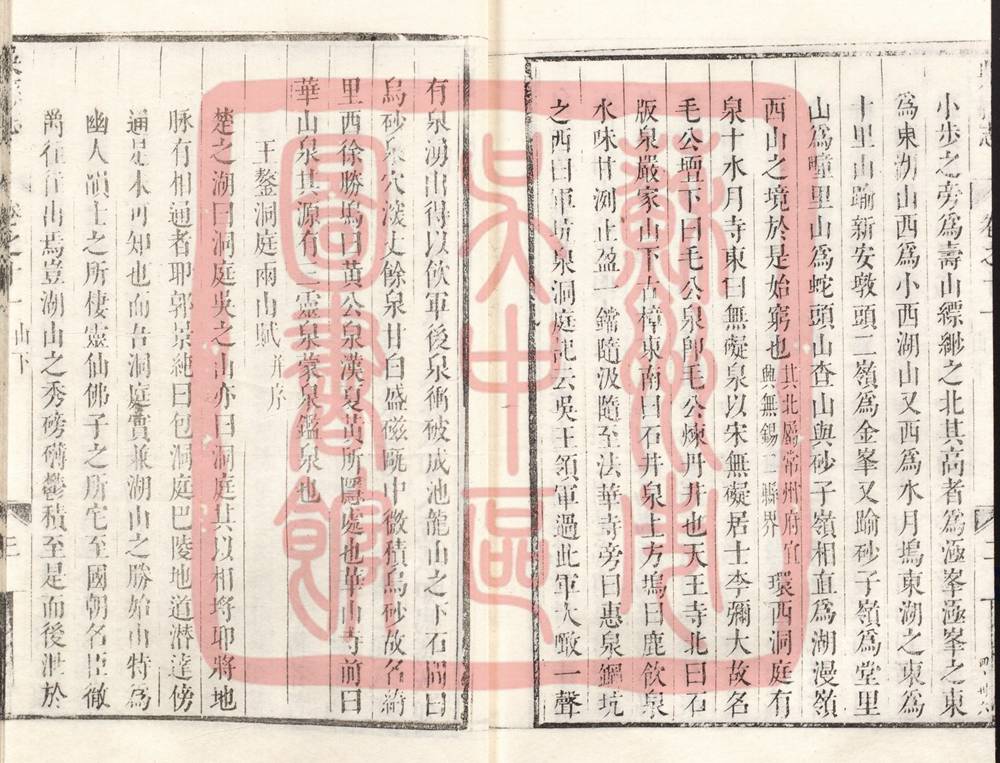 小步之旁爲壽山縹緲之北其高者爲㴠峯㴠峯之東
爲東湖山西爲小西湖山又西爲水月塢東湖之東爲
十里山踰新安墩頭二嶺爲金峯又踰砂子嶺爲堂里
山爲疃里山爲蛇頭山查山與砂子嶺相直爲湖漫嶺
西山之境於是始窮也其北屬常州府宜興無錫二縣界環西洞庭有
泉十水月寺東曰無礙泉以宋無礙居士李彌大故名
毛公壇下曰毛公泉卽毛公煉丹井也天王寺北曰石
版泉嚴家山下古樟東南曰石井泉上方塢曰鹿飲泉
水味甘洌止盈一鐺隨汲隨至法華寺旁曰惠泉鋼坑
之西曰軍坑泉洞庭記云吳王領軍過此軍大噉一聲
有泉湧出得以飲軍後泉衝破成池龍山之下石間曰
烏砂泉穴深丈餘泉甘曰盛磁甌中微積烏砂故名綺
里西徐勝塢曰黃公泉漢夏黃所隱處也華山寺前曰
華山泉其源有三靈泉蒙泉鑑泉也
王鏊洞庭兩山賦并序
楚之湖曰洞庭吳之山亦曰洞庭其以相埒耶將地
脉有相通者耶郭景純曰包洞庭巴陵地道潛達傍
通是未可知也而吾洞庭實兼湖山之勝始山特爲
幽人韻士之所棲靈仙佛子之所宅至國朝名臣徹
爵往往出焉豈湖山之秀磅礴鬱積至是而後泄於
卷之十一
山下
三
蘇州市
吳中區
圖書館